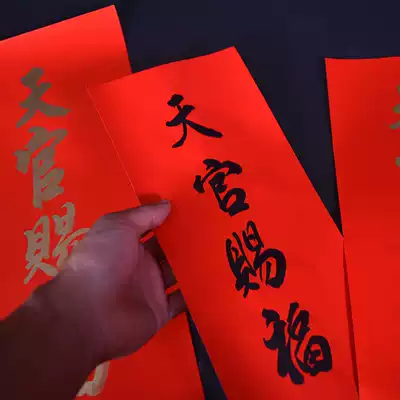 天官賜
天官賜福